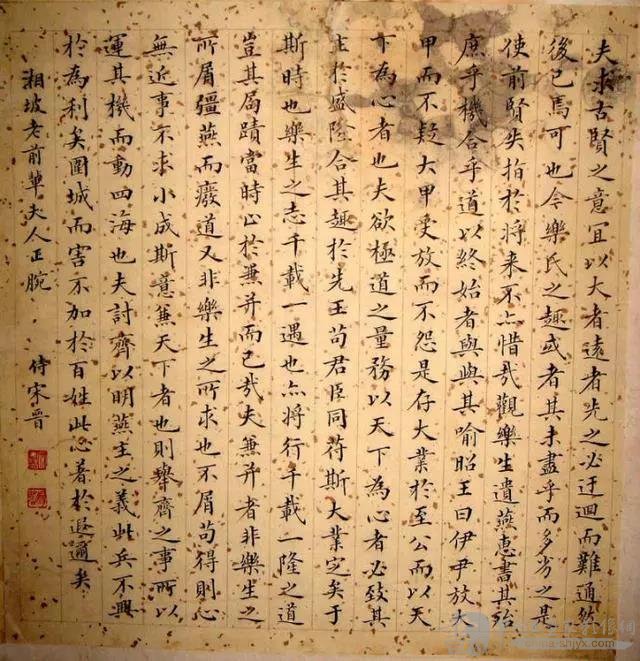 夫求古賢之意宜以大者遠者先之必迂迴而難通然
後已焉可也今樂氏之趣或者其未盡乎而多劣之是
使前賢失指於將來不亦惜哉觀樂生遺燕惠書其殆
庶乎機合乎道以終始者與與其喻昭王曰伊尹放大
甲而不疑大甲受放而不怨是存大業於至公而以天
下為心者也夫欲極道之量務以天下為心者必致其
主於盛隆合其趣於先王苟君臣同符斯大業定矣于
斯時也樂生之志千載一遇也亦將行千載一隆之道
豈其局蹟當時止於兼并而已哉夫兼并者非樂生之
所屑彊燕而廢道又非樂生之所求也不屑苟得則心
無近事不求小成斯意兼天下者也則舉齊之事所以
運其機而動四海也夫討齊以明燕主之義此兵不興
於為利矣圍城而害不加於百姓此心著於遐邇矣
湘坡老前輩夫人正腕 侍宋晋